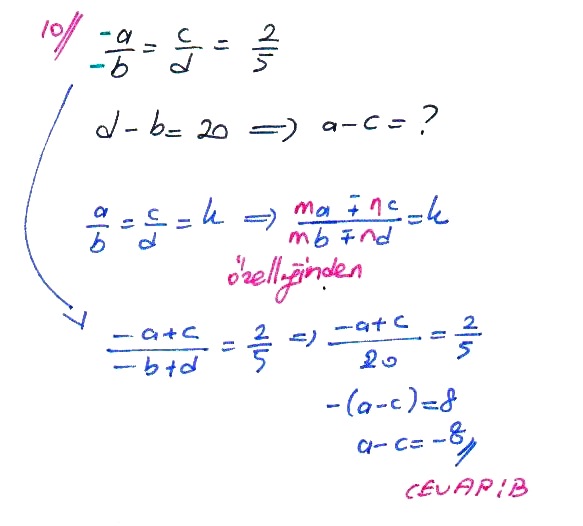 10// -a/-b = c/d = 2/5
d - b = 20 ⇒ a - c = ?
a/b = c/d = k ⇒ (ma ∓ nc)/(mb ∓ nd) = k
özelliğinden
(-a+c)/(-b+d) = 2/5 ⇒ (-a+c)/20 = 2/5
-(a-c)=8
a-c=-8//
CEVAP:B